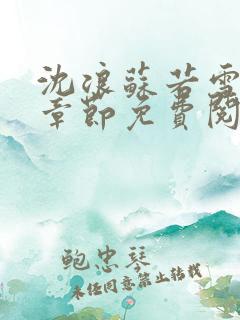 沈浪蘇若雪
章節免費閱
鲍忠琴
未经同意禁止转载